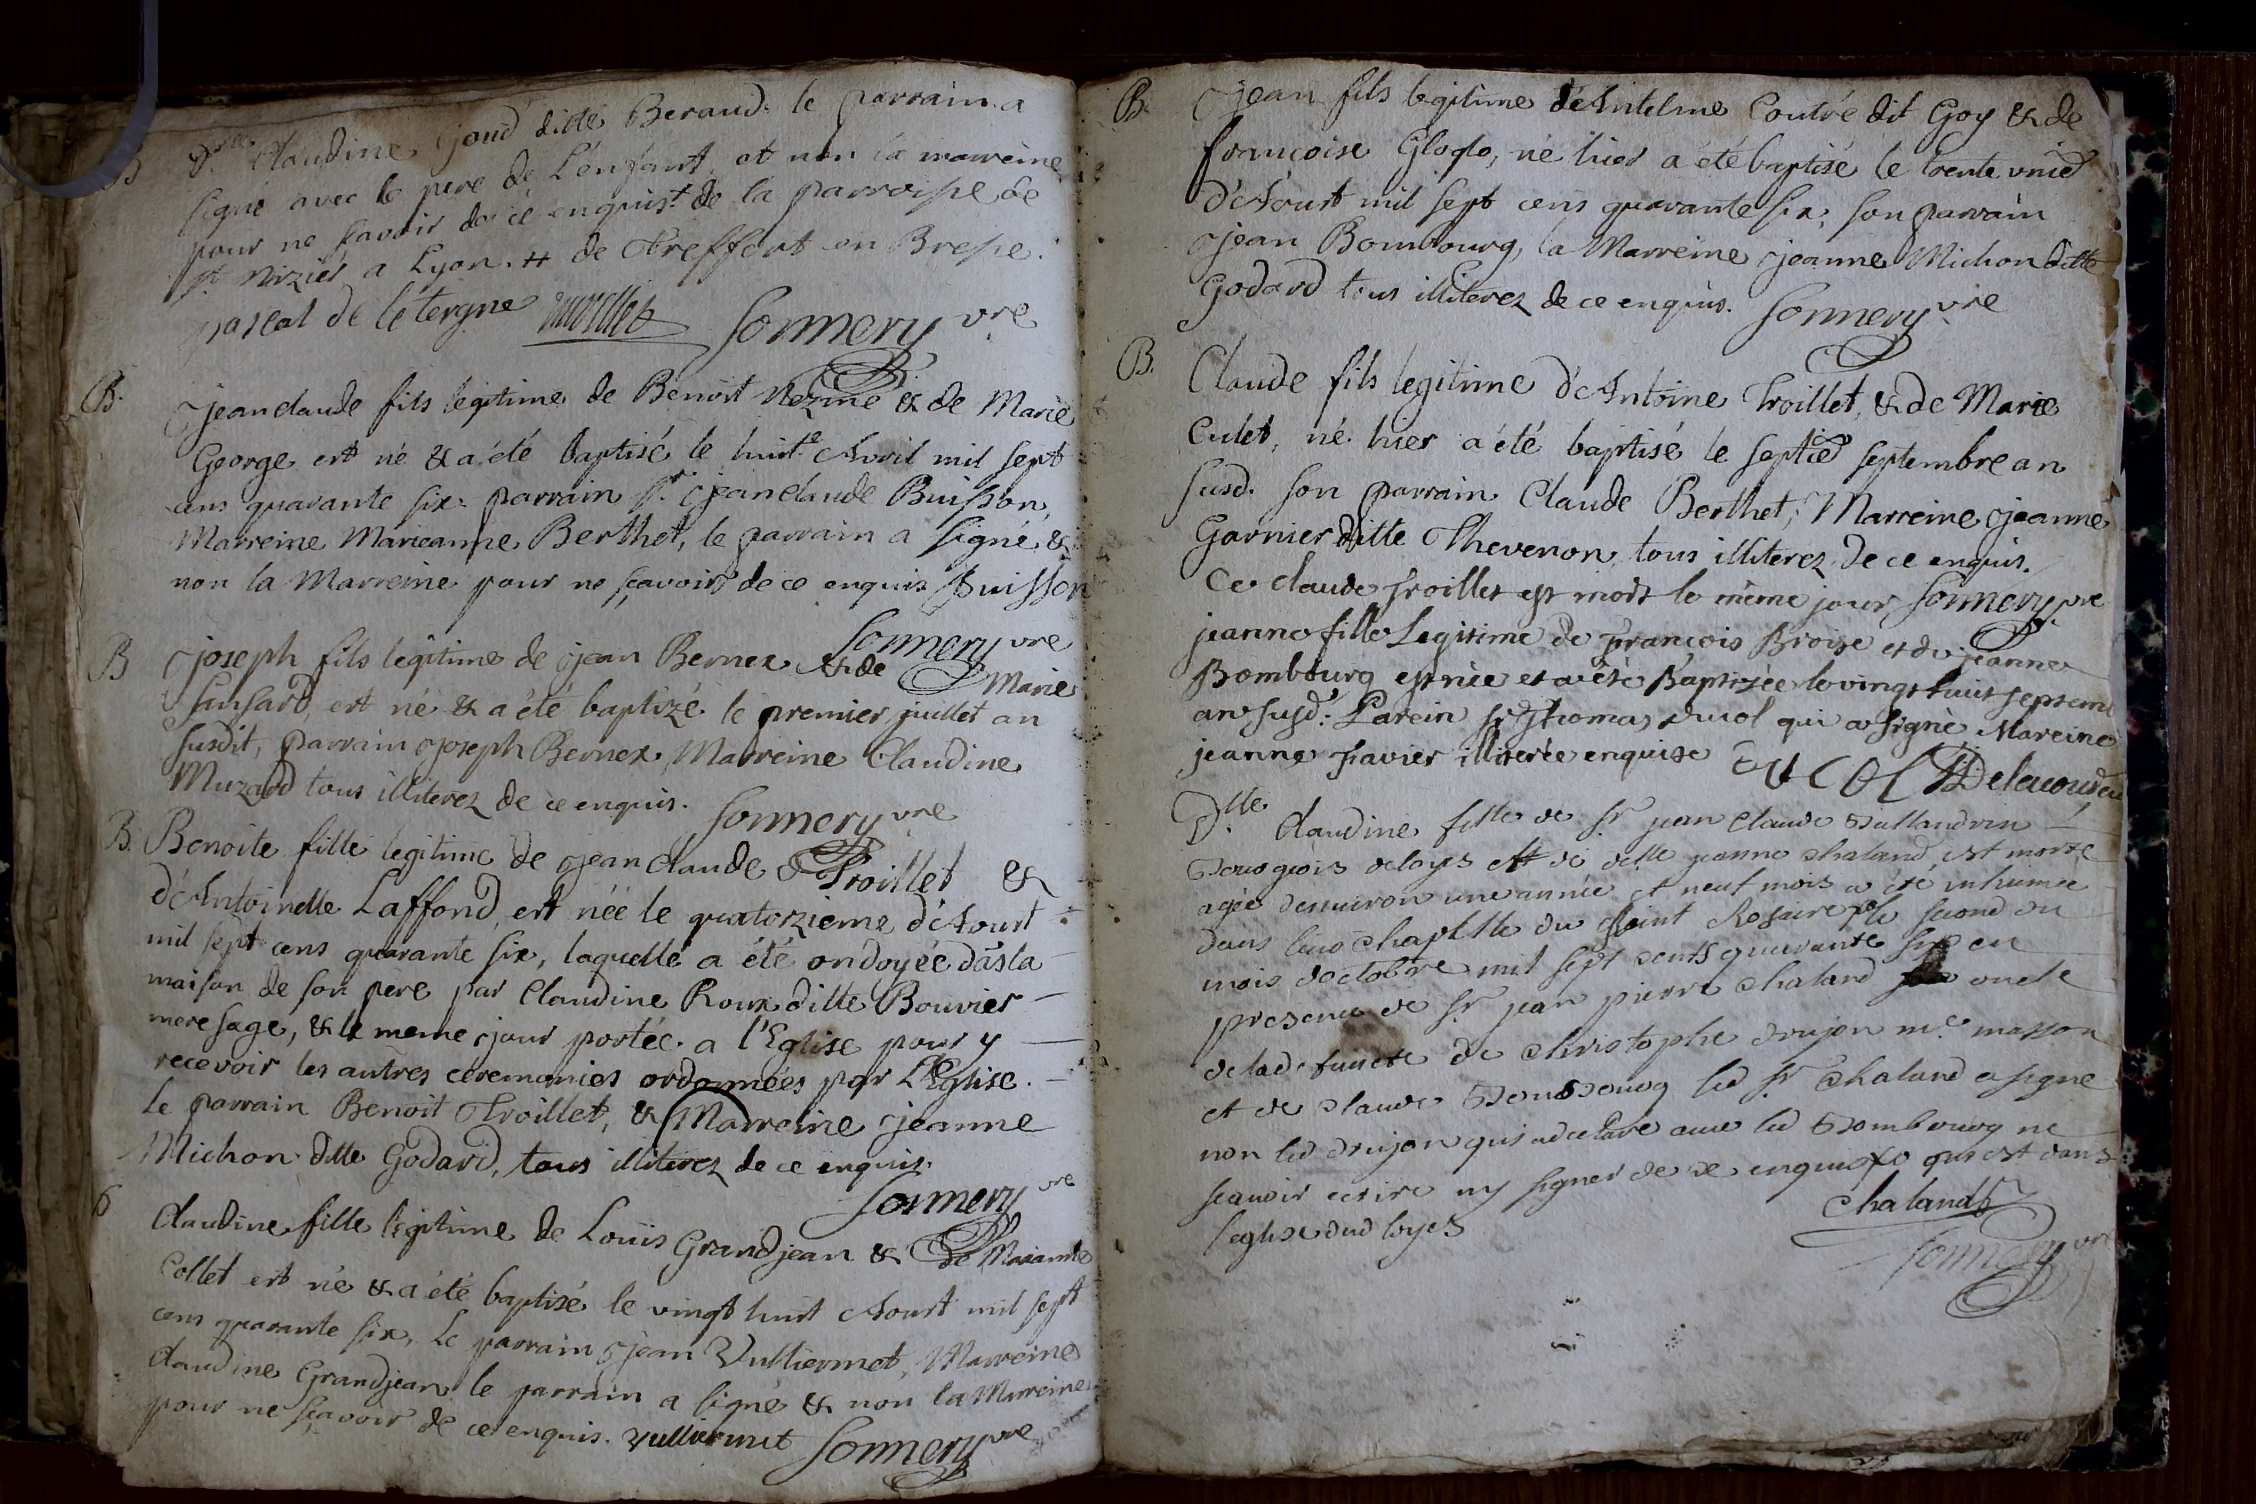 B
Dlle Claudine jond ditte Beraud. le parrain a
signé avec le pere de L'enfant, et non la marreine
pour ne sçavoir de ce enquist. de la parroisse de
st Nizier a Lyon. # de Treffort en Bresse.
pascal de letergne Sonnery vre
B. jean claude fils legitime de Benoit & de Marie
George est né & a été baptisé le huit.e Avril mil sept
cens quarante six. parrain sr. jean claude Buisson,
Marreine Marieanne Berthet, le parrain a signé, &
non la Marreine pour ne sçavoir de ce enquis Buisson
Sonnery vre
B joseph fils legitime de jean Bernex & de Marie
Sansard, est né & a été baptizé le premier juillet an
susdit, parrain joseph Bernex, Marreine Claudine
Muzard tous illiterez de ce enquis. Sonnery vre
B. Benoite fille legitime de jean claude Troillet &
d'Antoinette Laffond, est néé le quatorzieme d'Aoust
mil sept cens quarante six, laquelle a été ondoyée dãs la
maison de son pere par Claudine Roux ditte Bouvier
mere sage, & le meme jour portée a l'Eglise pour y
recevoir les autres céremonies ordonnées par L'Eglise.
le parrain Benoit Troillet, & Marreine jeanne
Michon ditte Godard, tous illiterez de ce enquis.
Sonnery vre
B Claudine fille legitime de Loüis Grandjean & de Marianne
Collet est né & a été baptisé le vingt huit Aoust mil sept
cens quarante six, Le parrain jean Vulliermet, Marreine
Claudine Grandjean le parrain a signé & non la Marreine
pour ne sçavoir de ce enquis. Vulliermet Sonnery vre
B. jean fils legitime d'Antelme Contré dit Goy & de
francoise Gloqlo, né hier a été baptisé le trente vnie
d'Aoust mil sept cens quarante six; son parrain
jean Bombourg, la Marreine jeanne Michon ditte
Godard tous illiterez de ce enquis. Sonnery vre
B. Claude fils legitime d'Antoine Troillet, & de Marie
Culet, né hier a été baptisé le septie septembre an
susd. son parrain Claude Berthet; Marreine jeanne
Garnier ditte Thevenon, tous illiterez de ce enquis.
Ce claude Troillet est mort le même jour Sonnery vre
jeanne fille Legitime de françois Broise et de jeanne
Bombourg est née et a été Baptizée le vingt huit septem
an susd: Parein sr Thomas ducol qui a signé Mareine
jeanne favier illiterée enquise Ducol
Dlle Claudine fille de sr jean claude
Bourgeois de loyes et de delle jeanne chaland, est morte
agée denuiron une année et neuf mois a été inhumée
dans leur chapelle du saint Rosaire le second du
mois doctobre mil sept cents quarante six en
presence de sr jean pierre chaland oncle
de la defuncte de christophe drujon me. masson
et de claude Bombourg led sr chaland a signe
non led drujon qui a declaré auec led Bombourg ne
scauoir ecrire ny signer de ce enquis qui est dans
leglise dud loyes
chaland
Sonnery vre